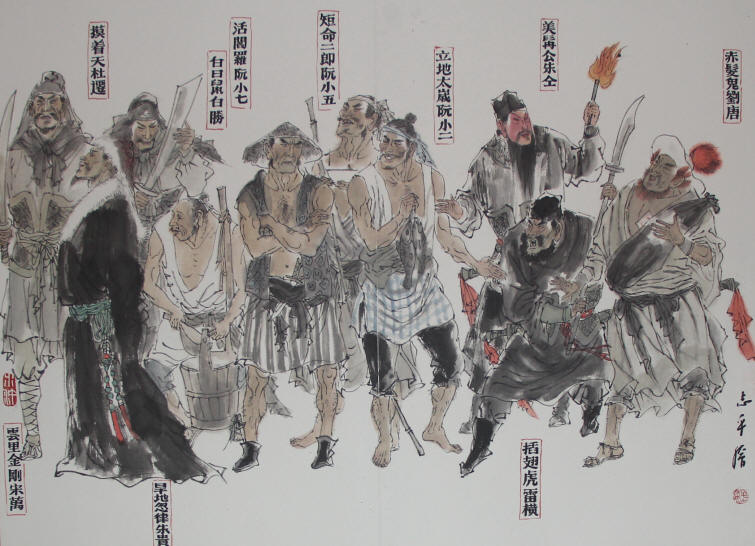 赤髮鬼劉唐
美髯公朱仝
立地太歲阮小二
短命二郎阮小五
活閻羅阮小七
白日鼠白勝
摸着天杜遷
插翅虎雷橫
旱地忽律朱貴
雲里金剛宋萬